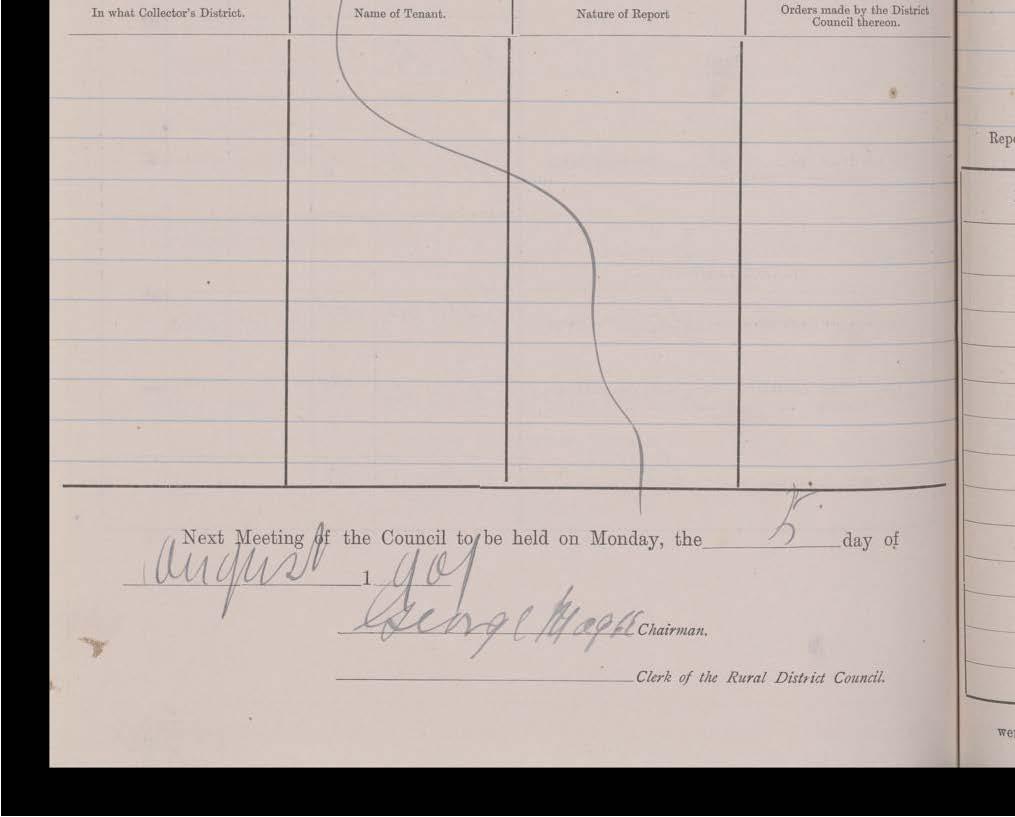 In what Collector's District. Name of Tenant. Nature of Report Orders made by the District
Council thereon.
Next Meeting of the Council to be held on Monday, the 5 day of
August 1901
George Chairman.
Clerk of the Rural District Council.